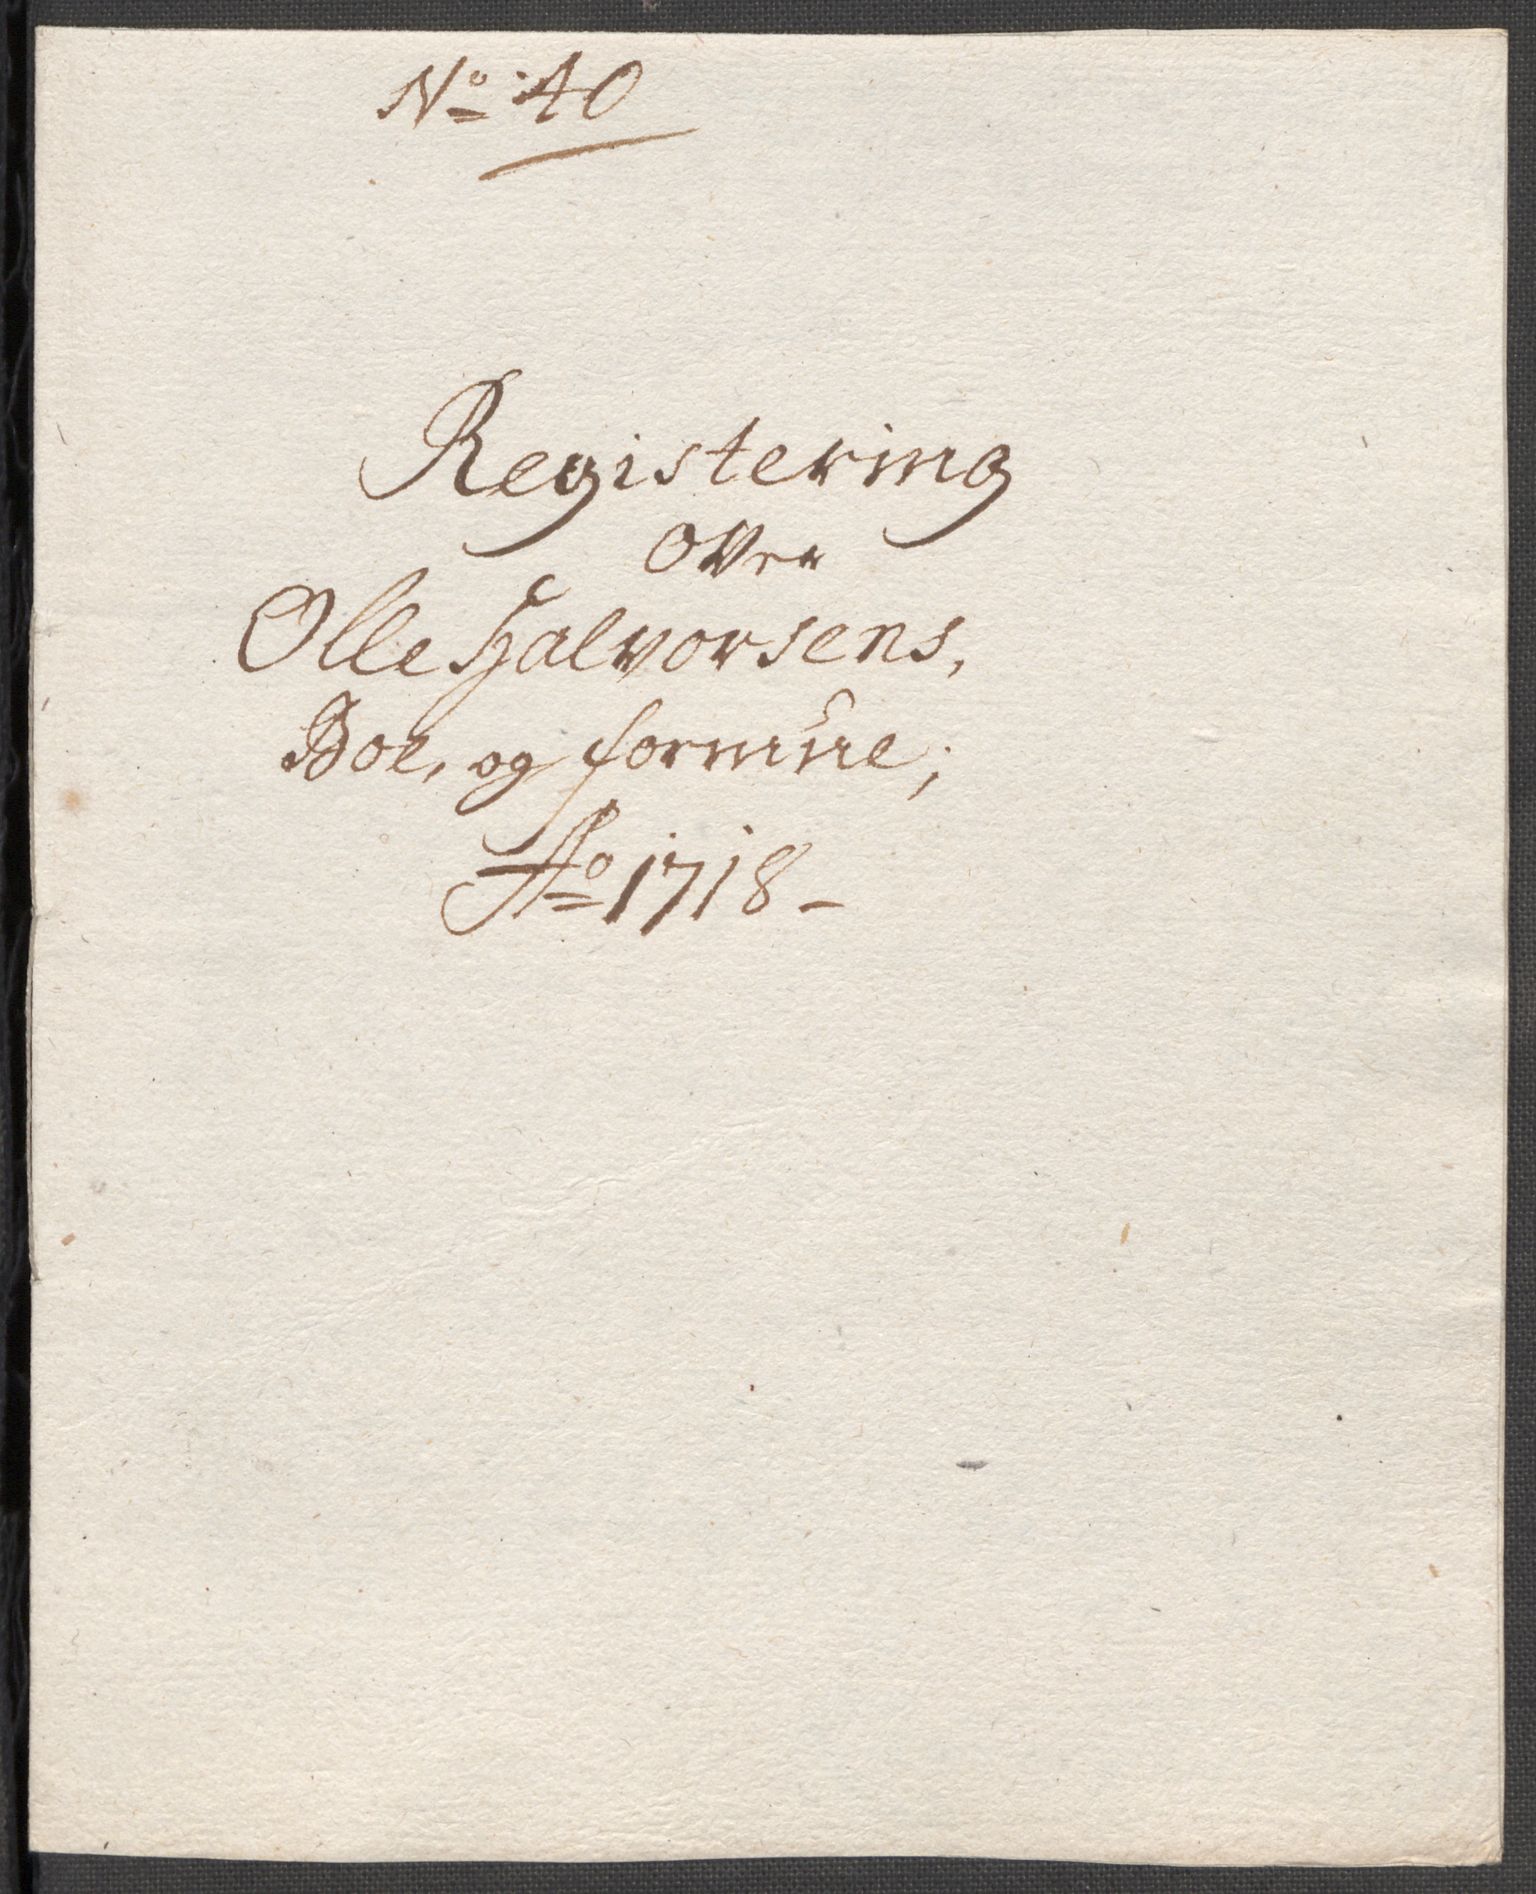 No 40
Registering
over
Olle Halvorsens,
Boe, og formue;
Ao 1718 -